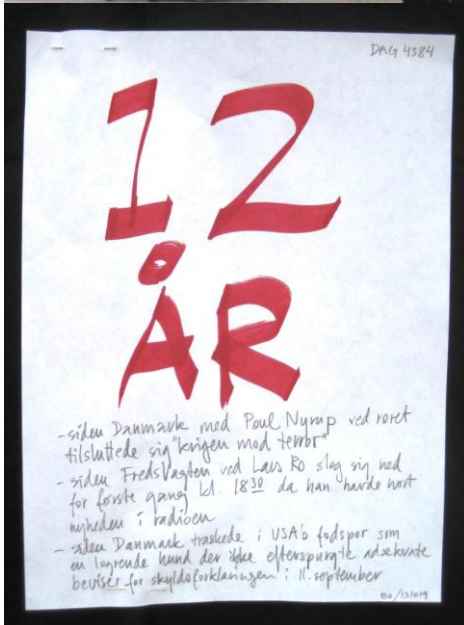 DAG 4384
12
ÅR
- siden Danmark med Poul Nyrup ved roret
tilsluttede sig "krigen mod terror"
- siden FredsVagten ved Lars Ro slog sig ned
for første gang kl. 18 30 da han havde hørt
nyheden i radioen
- siden Danmark traskede i USA's fodspor som
en logrende hund der ikke efterspurgte adækvate
beviser for skyldsforklaringen i 11. september
Bo/131019